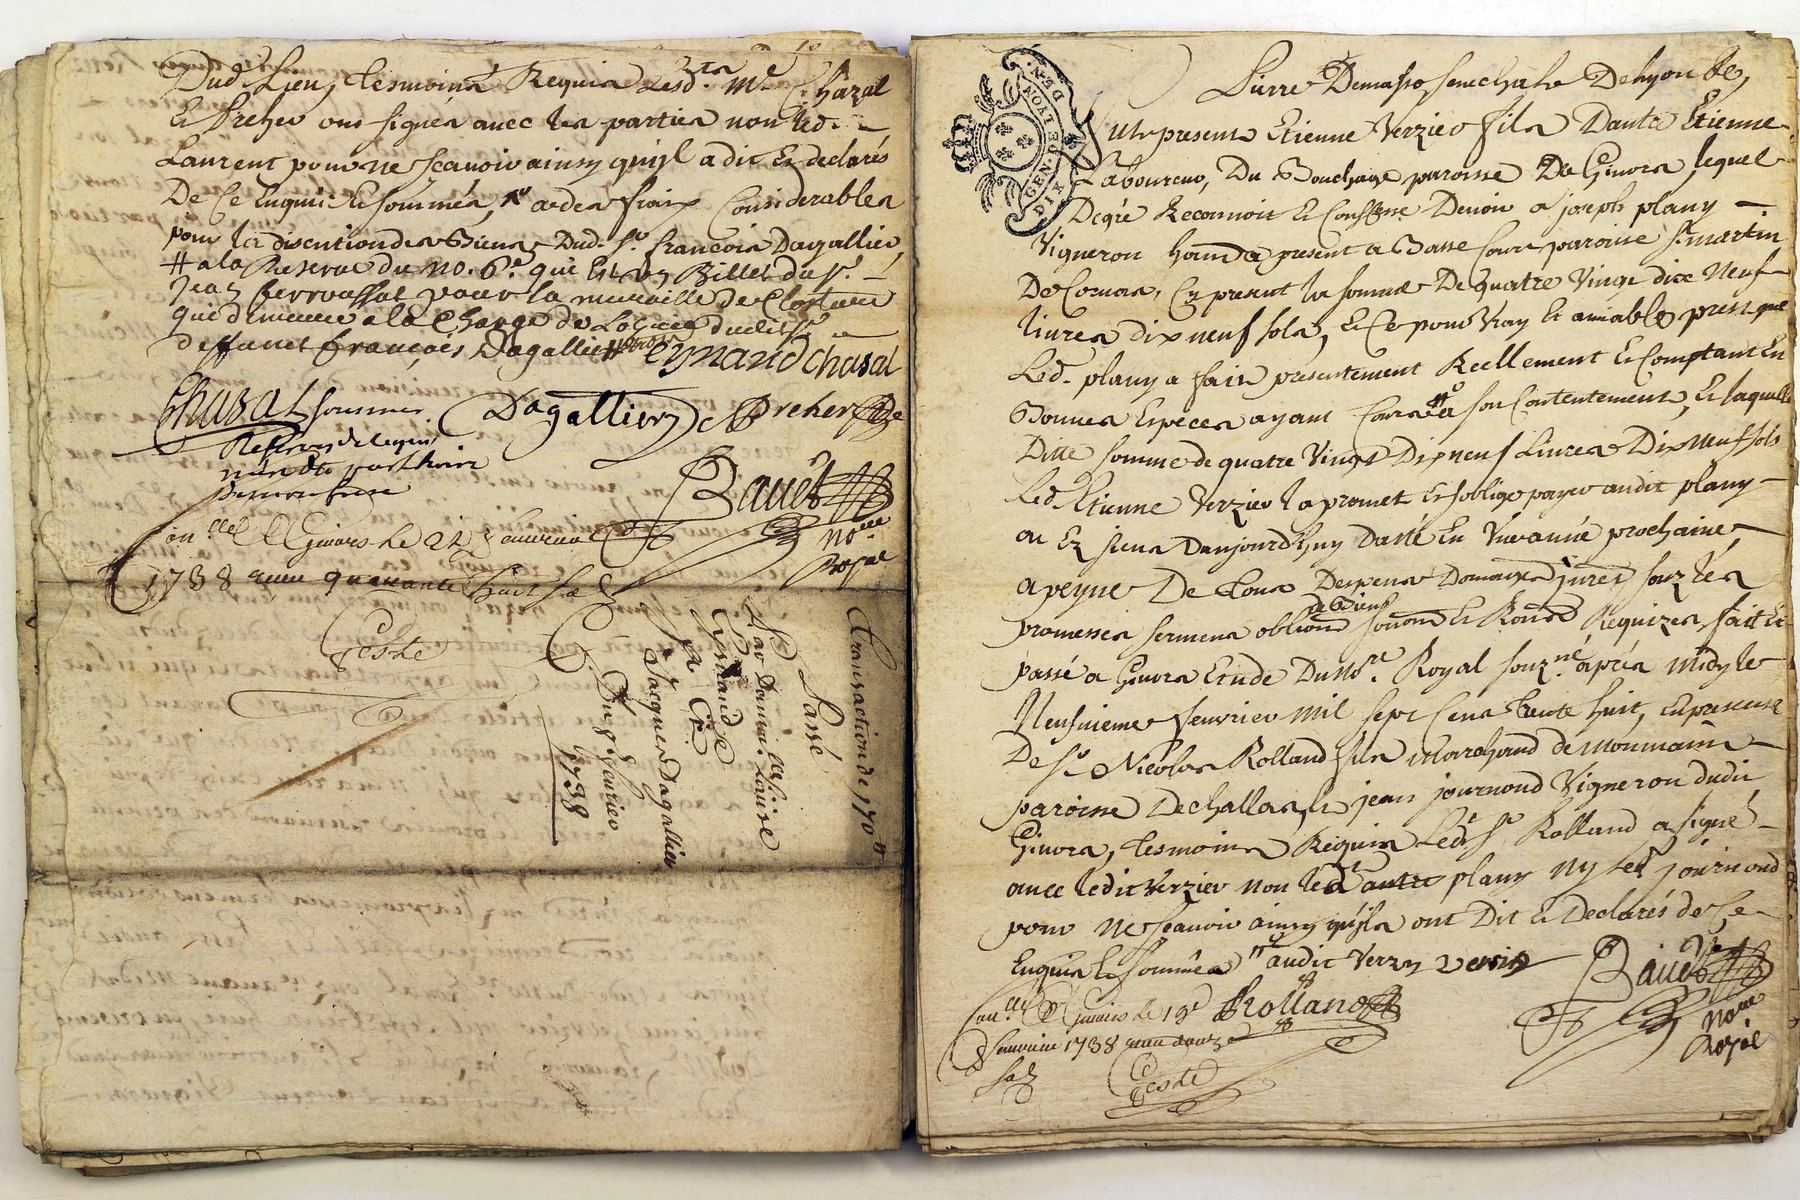 Dud. Lieu, tesmoins Requis Lesd. trs Me Chazal
Et Preher ont signés avec les parties non led.
Laurent pour ne scavoir ainsy quiyl a dit Et declarés
De Ce Enquis Et sommés, aedes fraix Considerables
pour la discution des Biens Dud. Sr. francois Dagallier
# a la Reserve du no. 6e. qui Est un Billet du sr.
Jean ferroussat pour la muraille de Cloture
qui demeure a la Charge de Lo dudit sr
deffunct françois Dagallier Eynaud Chasal
Chazal Dagallier Preher
Bauet
con.lle A Givors le 21 feuurier
1738 quarante huit s.
No.re
Royal
Geste
Transaction de 170 #
Passé
Par Damoi.lle Louise
Eynaud
A Sr.
Jacques Dagallier
Du 9 feurier
1738
DIX DEN.
GEN. DE LYON
Liure Demasso senechal De lyon &c,
fut present Etienne Verzier fils Dautre Etienne
Laboureur, Du Bouchage paroisse De Givors, lequel
Degré Reconnoit Et Confesse Devoir a joseph plany
Vigneron habitant a present a Basse Cour paroisse St. martin
De Cornas, Cy present la somme De quatre Vingt dix Neuf
livres dix neuf sols, Et Ce pour Vray Et amiable prest que
Led. plany a fait presentement Reellement Et Comptant En
Bonnes Especes ayant Cours # a son Contentement, Et laquelle
Ditte somme de quatre Vingt Dix neuf Livres Dix Neuf sols
Led. Etienne Verzier la promet Et soblige payer audit plany
ou Es siens Daujourdhuy Datte En Une année prochaine,
apeyne De Tous Despens Domages jures souz les
promesses sermens obligons de Biens soumons Et Renons Requizes, fait Et
passé a Givors Etude Du no.re Royal souz.né aprés midy le
Neufuieme feurier mil sept Cens trente huit, En presence
De Sr. Nicolas Rolland fils Marchand de Mournain
paroisse De challas, Et jean journoud Vigneron dudit
Givors, tesmoins Requis Led. Sr. Rolland a signé
avec ledit Verzier non led. autre plany ny led. journoud
pour ne scavoir ainsy quils ont Dit Et Declarés de Ce
Enquis Et sommés # audit Verzy Verzie
Bauet
con.llé A Givors le 19e Rolland
feuurier 1738 douze
sols
No.re
Royal
Geste